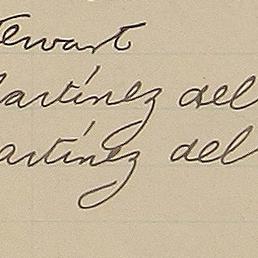 tewart
artínez del
artínez del